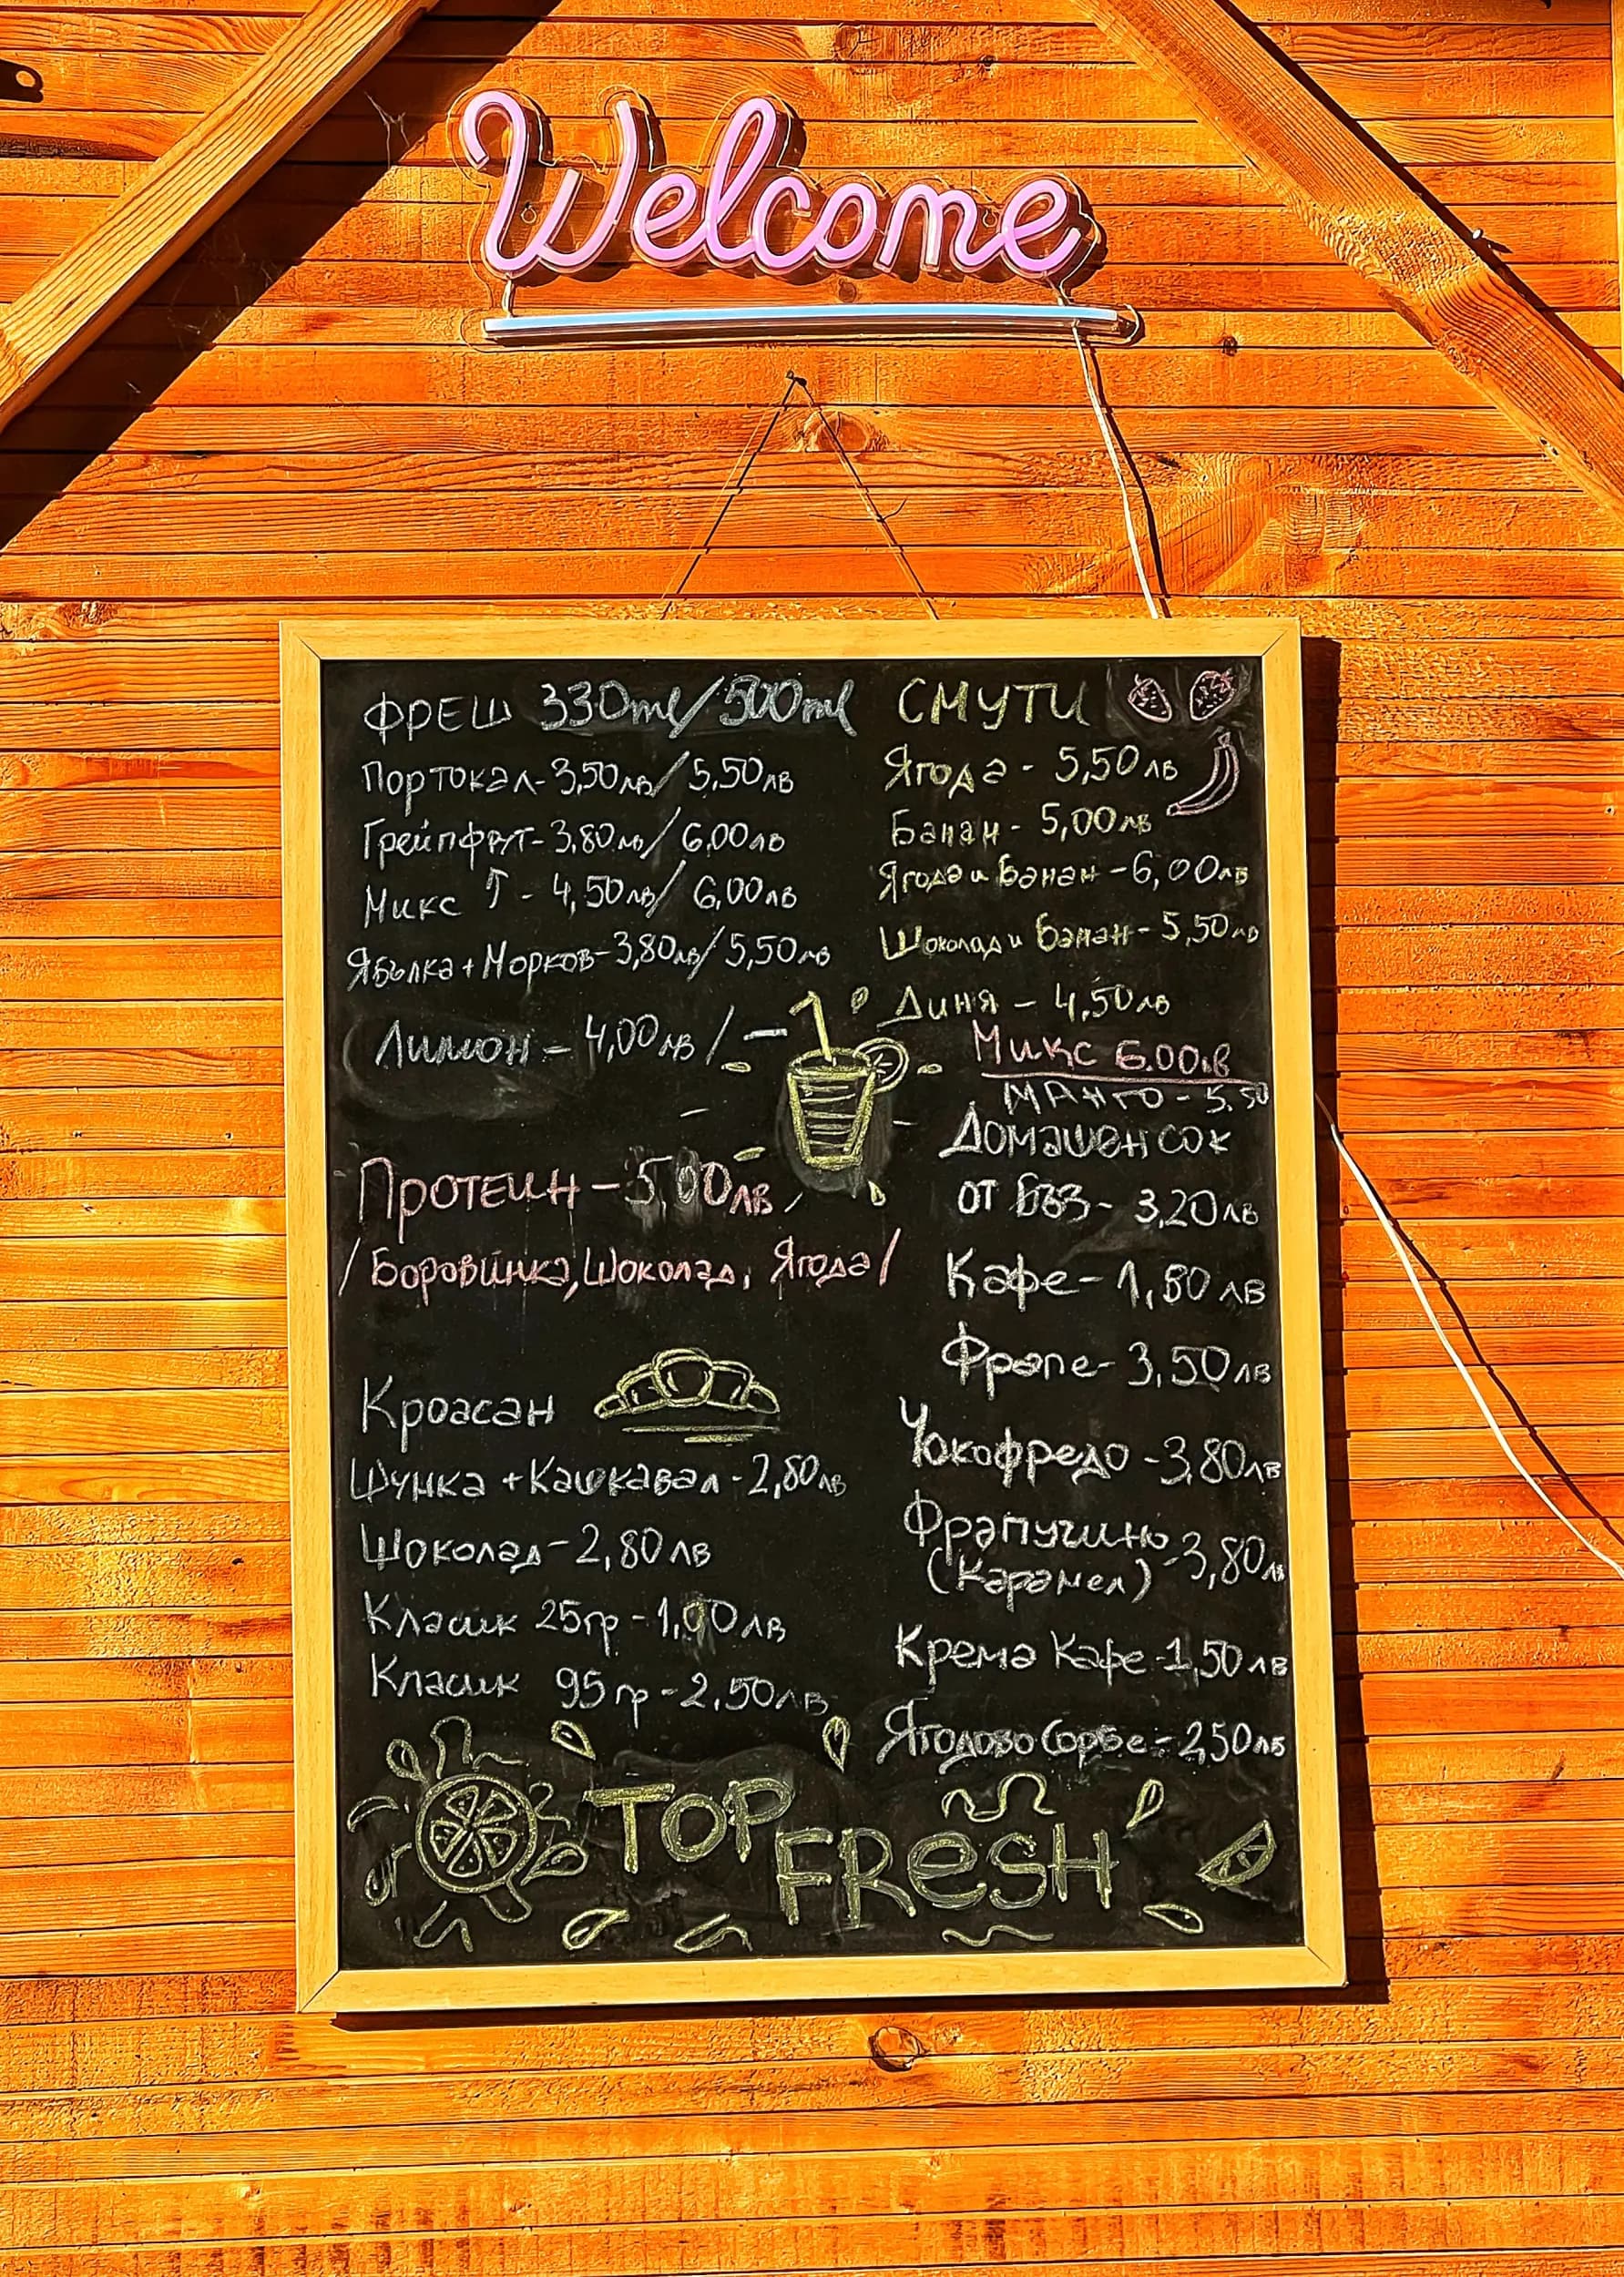 Welcome
ФРЕШ 330ml/500ml
Портокал-3,50лв/5,50лв
Грейпфрут-3,80лв/6,00лв
Микс ↑-4,50лв/6,00лв
Ябълка+Морков-3,80лв/5,50лв
Лимон-4,00лв/-
Протеин-5,00лв
/Боровинка,Шоколад, Ягода/
Кроасан
Шунка+Кашкавал-2,80лв
Шоколад-2,80лв
Класик 25гр-1,00лв
Класик 95гр-2,50лв
СМУТИ
Ягода-5,50лв
Банан-5,00лв
Ягода и Банан-6,00лв
Шоколад и Банан-5,50лв
Диня-4,50лв
Микс 6.00лв
МАНГО-5.50
Домашен сок
от Бъз-3,20лв
Кафе-1,80лв
Фрапе-3,50лв
Чокофредо-3,80лв
Фрапучино-3,80лв
(Карамел)
Крема Кафе-1,50лв
Ягодово Сорбе-2,50лв
TOP
FReSH